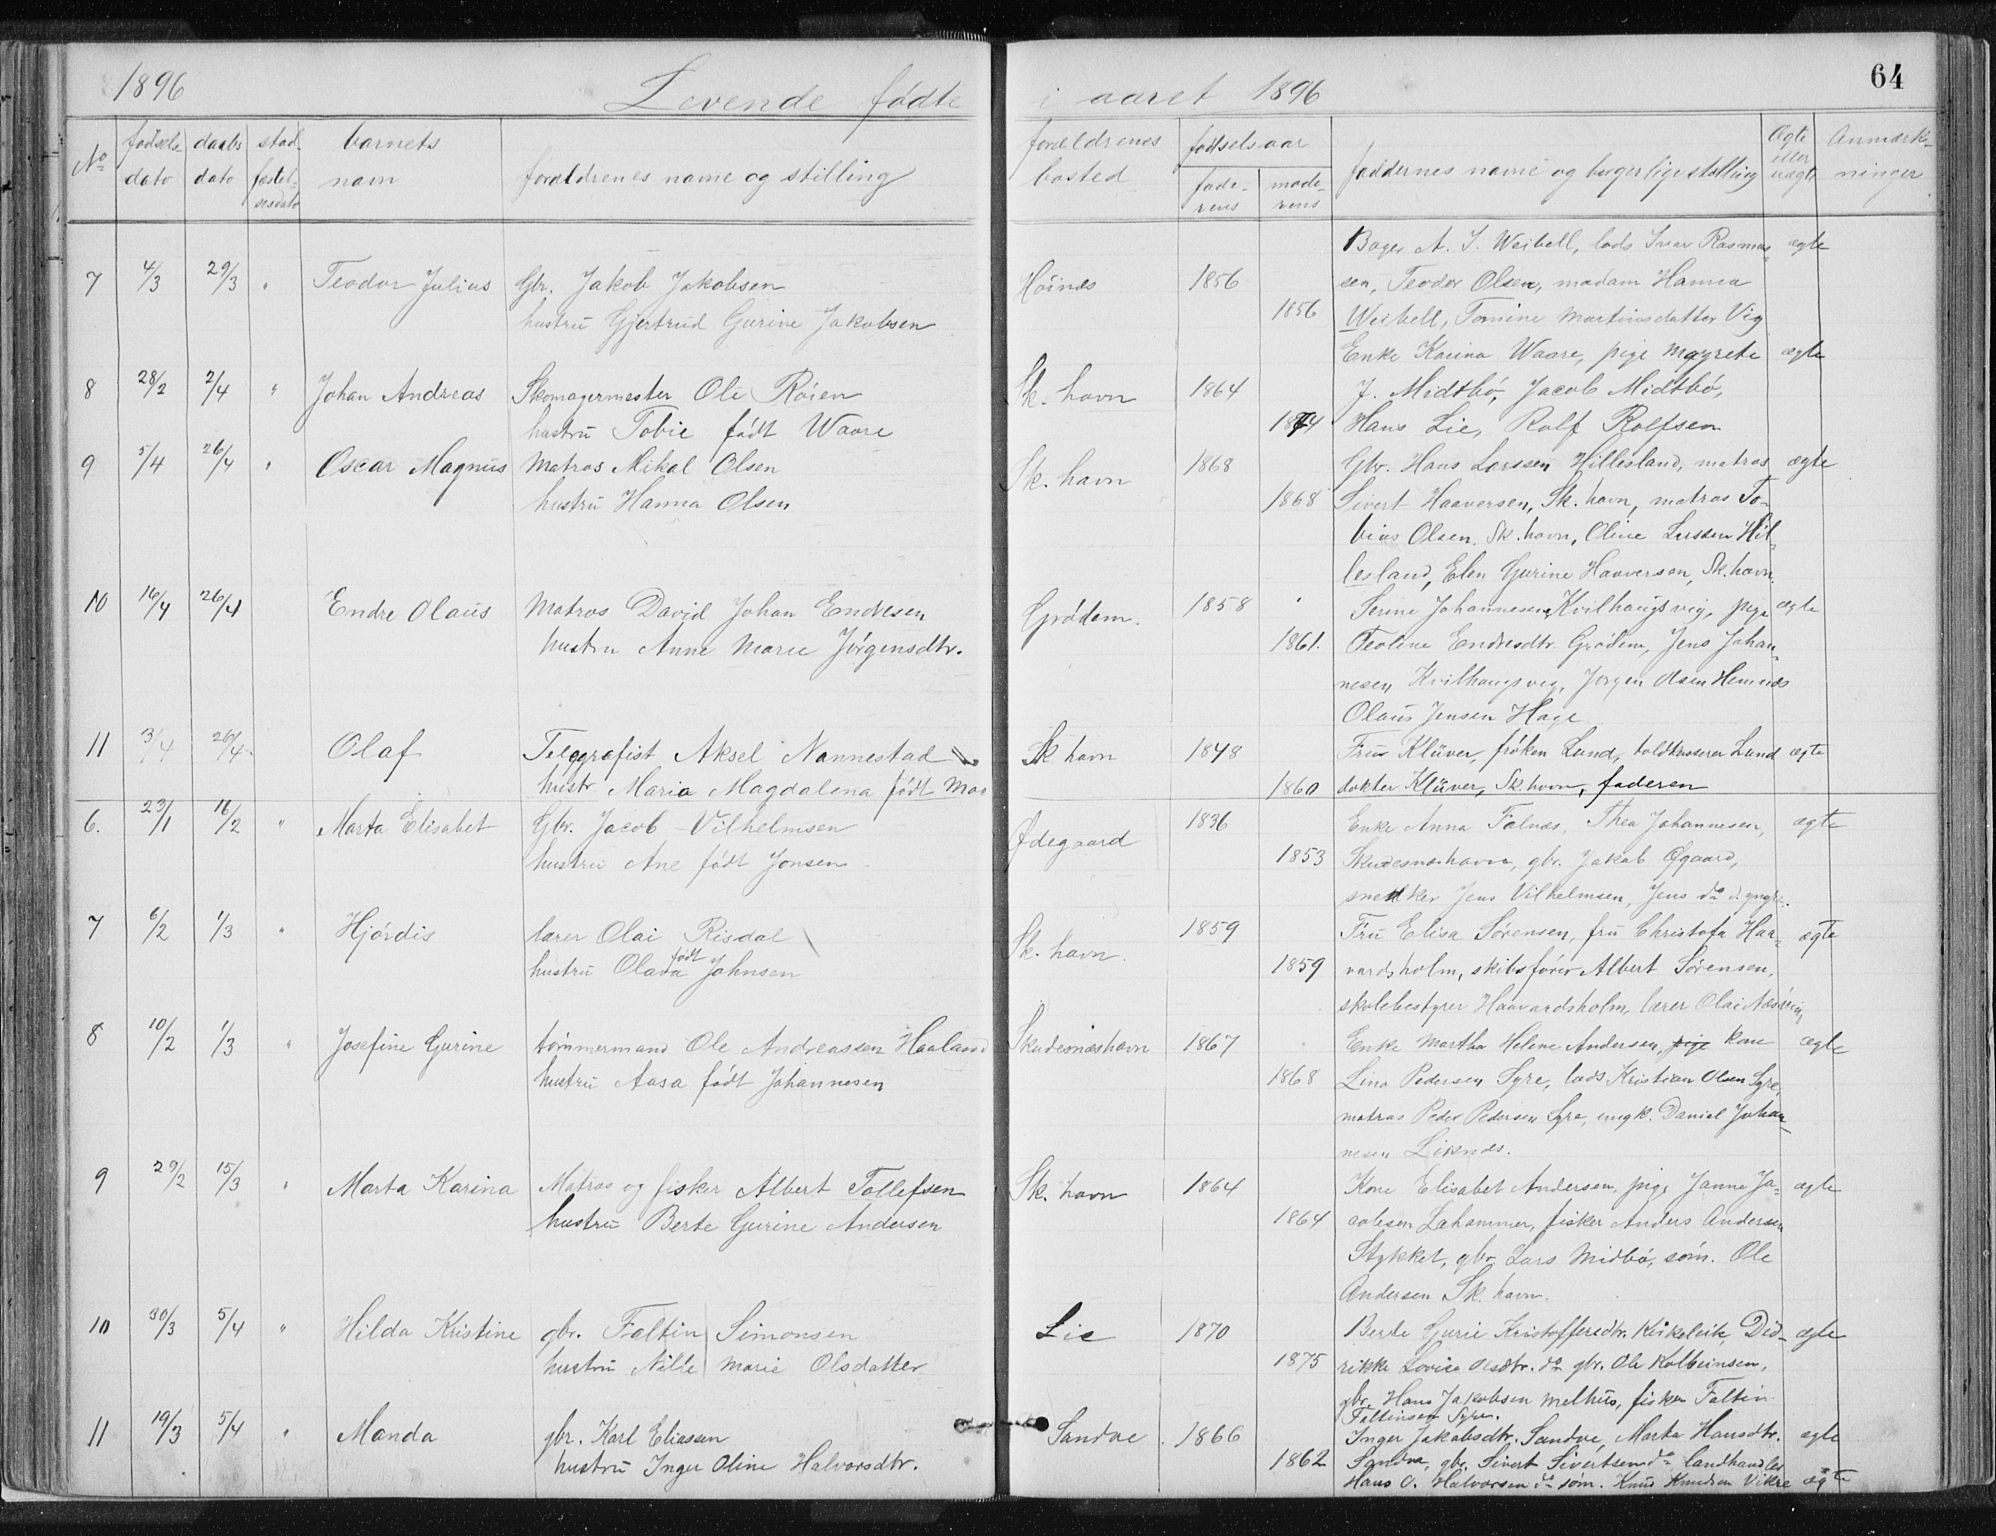 1896 Levende fødte i aaret 1896 64
No fødsels dato daabs dato stadfæstelsesdato barnets navn forældrenes navne og stilling forældrenes bosted fødselsaar faderens moderens faddernes navne og borgerlige stilling Ægte eller uægte Anmærkninger
Bager A. J. Weibell, lods Ivar Rasmus- ægte
7 4/3 29/3 " Teodor Julius Gbr. Jakob Jakobsen Høinæs 1856 sen, Teodor Olsen, madam Hanna
hustru Gjertrud Gurine Jakobsen 1856 Weibell, Tomine Martinsdatter Vig
Enke Karina Waare, pige Magrete ægte
8 28/2 2/4 " Johan Andreas Skomagermester Ole Røien Sk. havn 1864 J. Midtbø, Jacob Midtbø,
hustru Tobie født Waare 1874 Hans Lie, Rolf Rolfsen
9 5/4 26/4 " Oscar Magnus Matros Mikal Olsen Sk. havn 1868 Gbr. Hans Larssen Hillesland, matros ægte
hustru Hanna Olsen 1868 Sivert Haaversen, Sk. havn, matros To-
bias Olsen, Sk. havn, Oline Larssen Hil-
lesland, Elen Gurine Haaversen, Sk. havn.
10 16/4 26/4 Endre Olaus Matros David Johan Endresen Grødem. 1858 Serine Johannesen Kvilhaugsvig, pige ægte
hustru Anne Marie Jørgensdtr. 1861. Teoline Endresdtr. Grødem, Jens Johan-
nesen Kvilhaugsvig, Jørgen Olsen
Olaus Jensen Hage
11 3/4 26/4 Olaf Telegrafist Aksel Nannestad Sk havn 1848 Fru Klüver, frøken Lund, toldkasserer Lund ægte
hustr. Maria Magdalena født Moe 1860 dokter Klüver, Sk. havn, faderen
6. 23/1 16/2 " Marta Elisabet Gbr. Jacob Vilhelmsen Ødegaard 1836 Enke Anna Falnæs, Thea Johannesen, ægte
hustru Ane født Jonsen 1853 Skudesnæshavn, gbr. Jakob Øgaard,
snedker Jens Vilhelmsen, Jens do d. yngre.
7 6/2 1/3 " Hjørdis lærer Olai Risdal Sk. havn. 1859 Fru Elisa Sørensen, fru Christofa Haa- ægte
hustru Olava født Johnsen 1859 vardsholm, skibsfører Albert Sørensen,
skolebestyrer Haavardsholm, lærer Olai
8 10/2 1/3 " Josefine Gurine tømmermand Ole Andreassen Haaland Skudesnæshavn 1867 Enke Martha Helene Andersen, pige kone ægte
hustru Aasa født Johannesen 1868 Lina Pedersen Syre, lods Kristian Olsen Syre,
matros Peder Pedersen Syre, ungk. Daniel Johan-
nesen
9 29/2 15/3 " Marta Karina Matros og fisker Albert Tollefsen Sk. havn 1864 Kone Elisabet Andersen, pige Janne Ja- ægte
hustru Berte Gurine Andersen 1864 cobsen Lahammer, fisker Anders Andersen
Stykket, gbr. Lars Midbø, søm. Ole
Andersen Sk. havn.
10 30/3 5/4 " Hilda Kristine gbr. Faltin Simonsen Lie 1870 Berte Gurie Kristoffersdtr. Did- ægte
hustru Nille Marie Olsdatter 1875 rikke Lovise Olsdtr. do gbr. Ole Kolbeinsen,
gbr. Hans Jakobsen Melhus, fisker Faltin
Faltinsen Syre.
11 19/3 5/4 " Manda gbr. Karl Eliassen Sandve. 1866 Inger Jakobsdtr. Sandve, Marta Hansdtr. ægte
hustru Inger Oline Halvorsdtr. 1862 Sandve, gbr. Sivert Sivertsen do landhandler
Hans O. Halvorsen do søm. Knud Knudsen Vikre ægte